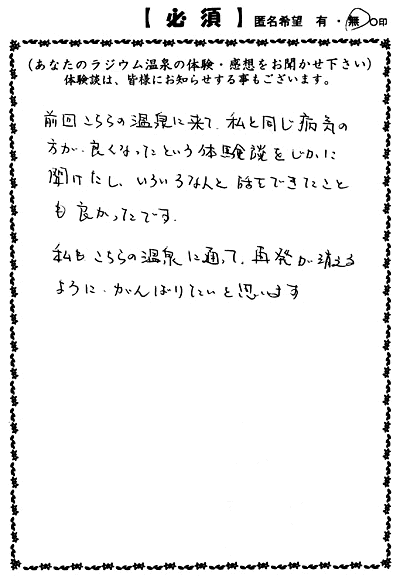 【必須】 匿名希望 有・無 ○印
(あなたのラジウム温泉の体験・感想をお聞かせ下さい)
体験談は、皆様にお知らせする事もございます。
前回こちらの温泉に来て、私と同じ病気の
方が、良くなったという体験談をじかに
聞けたし、いろいろな人と話もできたこと
も良かったです。
私もこちらの温泉に通って、再発が消える
ように、がんばりたいと思います